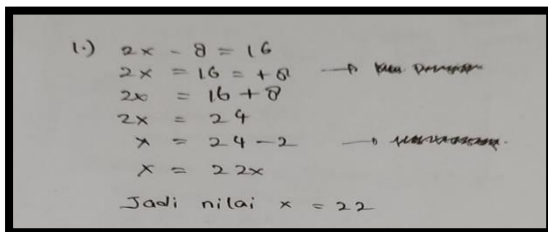 1.) 2x - 8 = 16
2x = 16 = + 8
2x = 16 + 8
2x = 24
x = 24 - 2
x = 22x
Jadi nilai x = 22